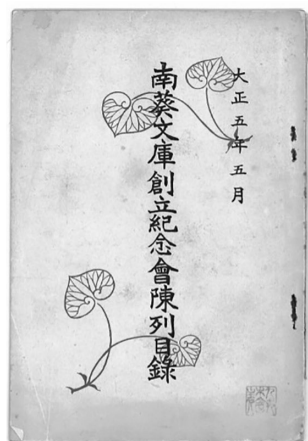 大正五年五月
南葵文庫創立紀念會陳列目錄